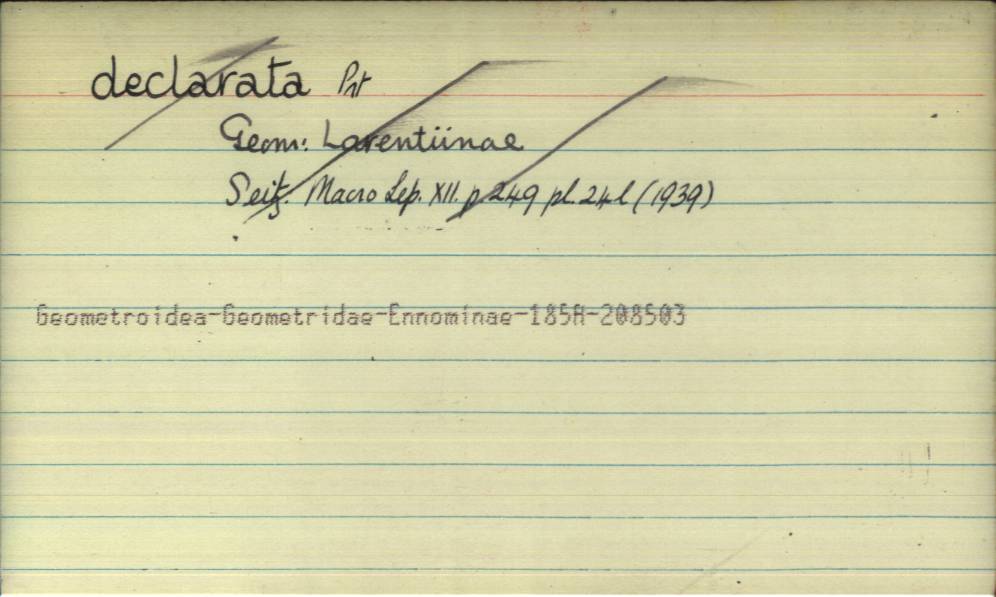 declarata Prt
Geom: Larentiinae
Seitz. Macro Lep. XII. p 249 pl. 24 l (1939)
Geometroidea-Geometridae-Ennominae-185A-208503